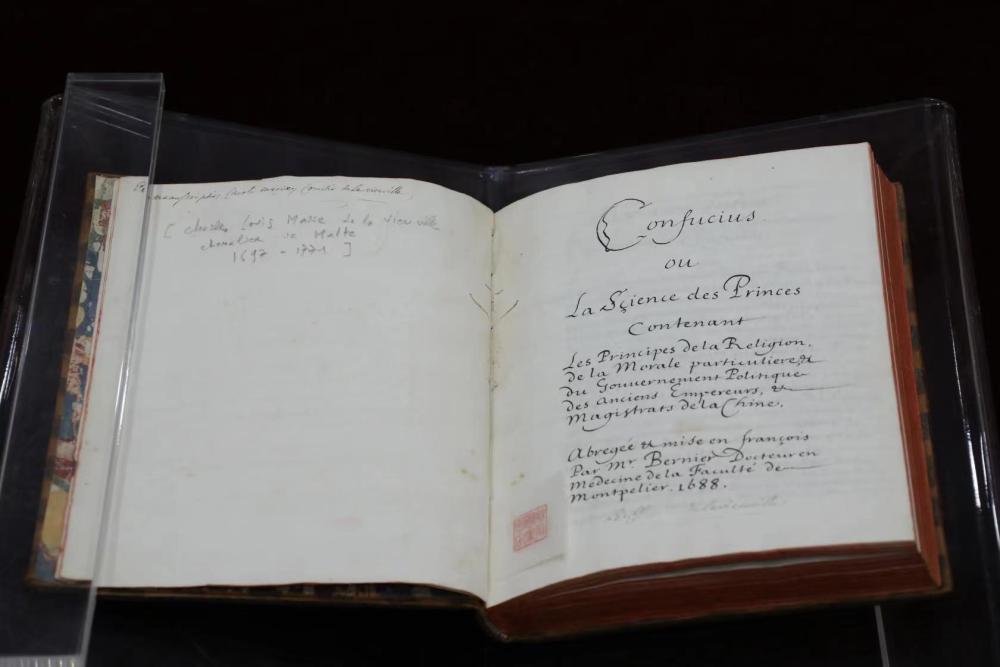 manuscriptis Caroli
[ Charles Louis Marie de la Vieuville
chevalier de Malte
1697 - 1771 ]
Confucius
ou
La Sçience des Princes
Contenant
Les Principes de la Religion,
de la Morale particuliere, &
du Gouvernement Politique
des anciens Empereurs, &
Magistrats de la Chine.
Abregée & mise en françois
Par Mr. Bernier Docteur en
Medecine de la Faculté de
Montpelier. 1688.